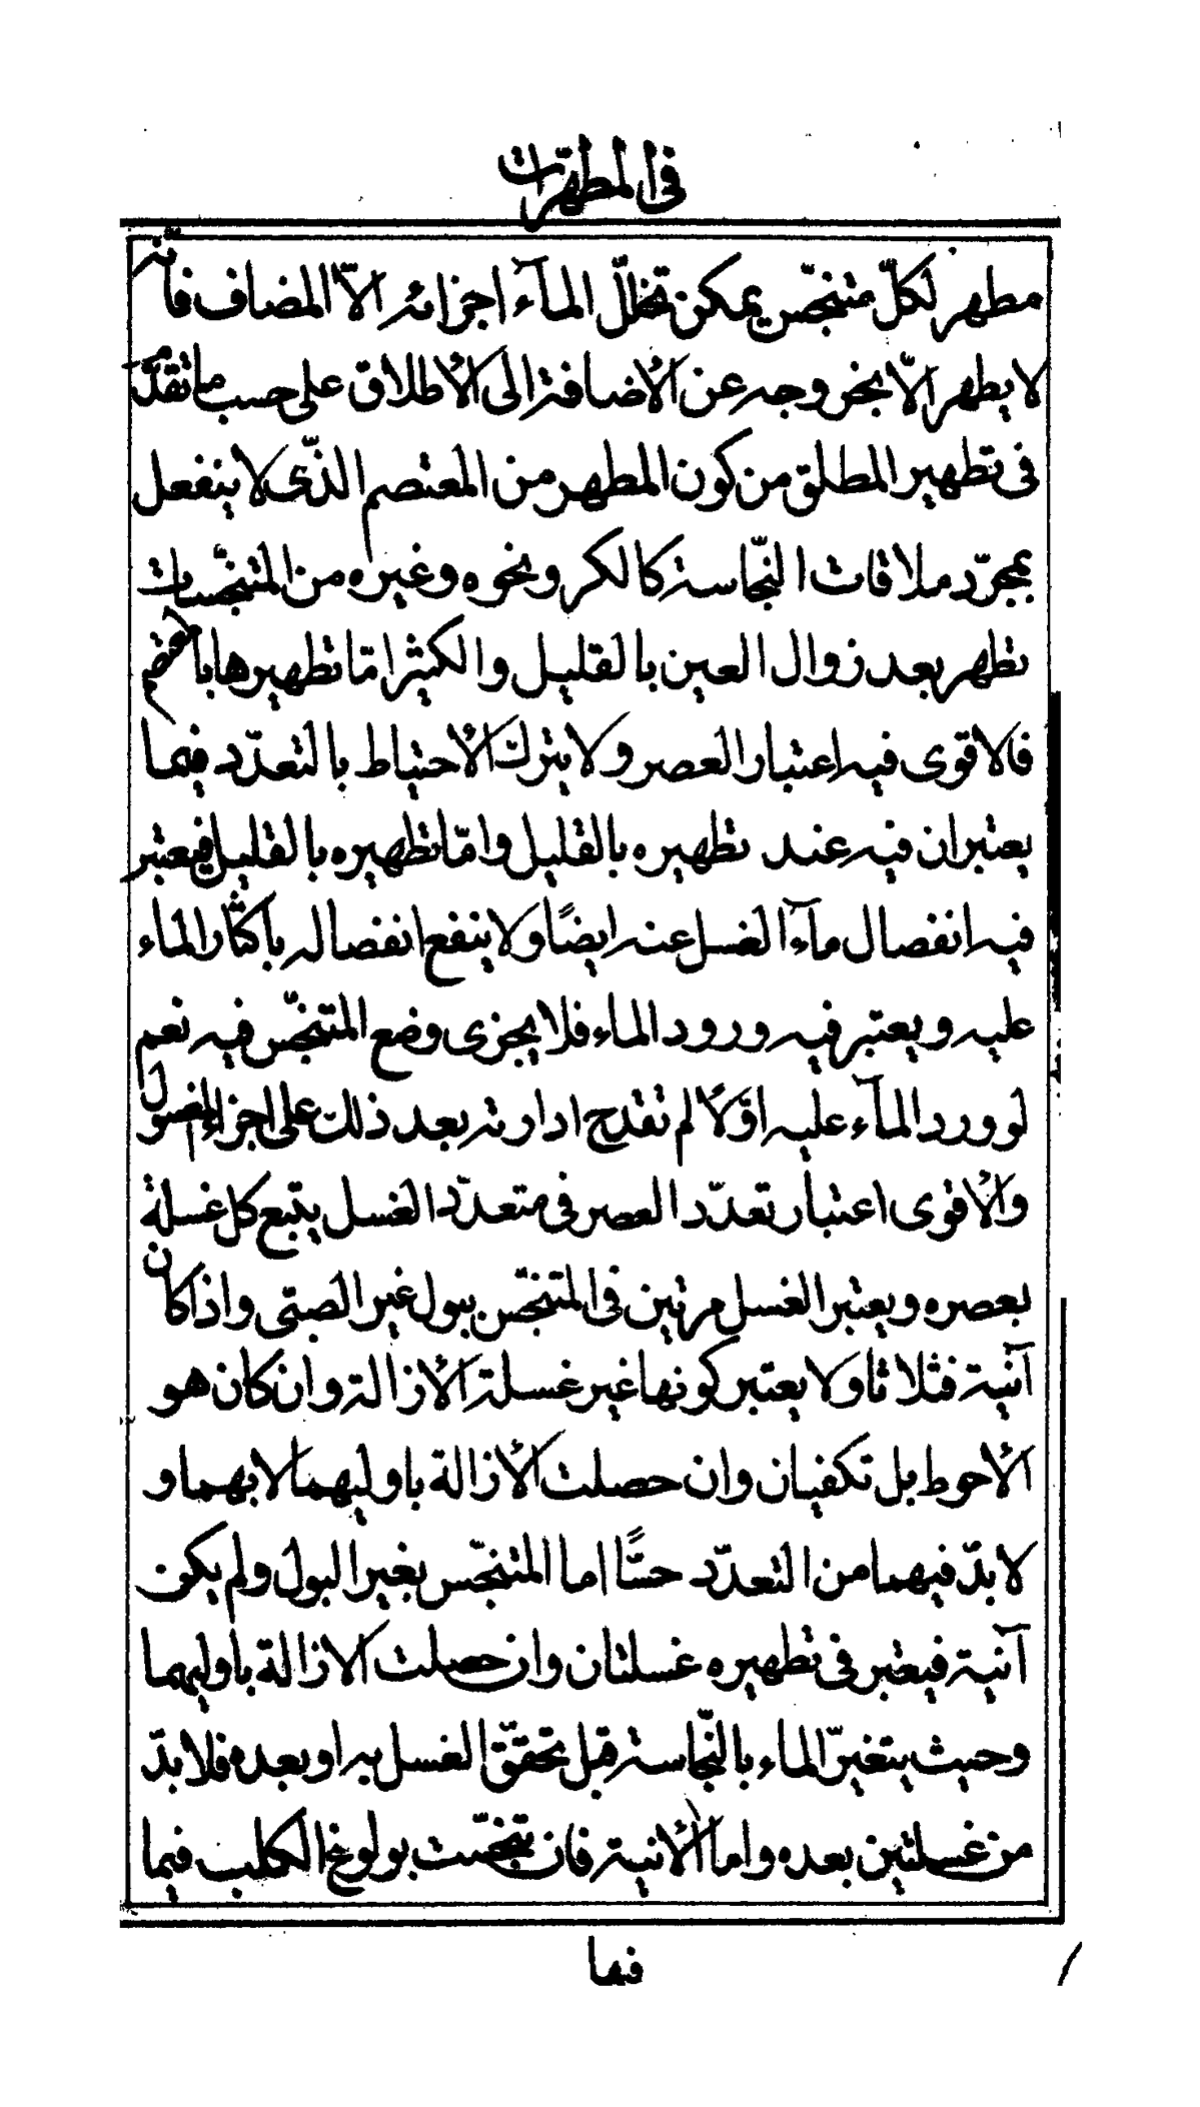 فی المطهّرات
مطهر لكلّ متنجّس يمكن تخلّل المآء اجزائه الّا المضاف فانّه
لا يطهر الّا بخروجه عن الأضافة الى الأطلاق على حسب ما تقدّم
فی تطهير المطلق من كون المطهر من المعتصم الذّی لا ينفعل
بمجرّد ملاقات النّجاسة كالكر ونحوه وغيره من المتنجّسات
تطهر بعد زوال العين بالقليل والكثير امّا تطهيرها بالمعتصم
فالاقوى فيه اعتبار العصر ولا يترك الأحتياط بالتعدّد فيما
يعتبران فيه عند تطهيره بالقليل وامّا تطهيره بالقليل فيعتبر
فيه انفصال مآء الغسل عنه ايضًا ولا ينفع انفصاله باكثار الماء
عليه ويعتبر فيه ورود الماء فلا يجزى وضع المتنجّس فيه نعم
لو ورد المآء عليه اوّلًا لم تقدح ادارته بعد ذلك على اجزاء المغسول
والأقوى اعتبار تعدّد العصر فی متعدّد الغسل يتبع كل غسلة
بعصره ويعتبر الغسل مرتين فی المتنجّس ببول غير الصبّی واذا كان
آنية فثلاثا ولا يعتبر كونها غير غسلة الأزالة وان كان هو
الأحوط بل تكفيان وان حصلت الأزالة باوليهما لا بهما و
لا بدّ فيهما من التعدّد حسًّا اما المتنجّس بغير البول ولم يكن
آنية فيعتبر فی تطهيره غسلتان وان حصلت الازالة باوليهما
وحيث يتغيّر الماء بالنّجاسة قبل تحقّق الغسل به او بعده فلا بدّ
من غسلتين بعده واما الأنية فان تنجّست بولوغ الكلب فيما
فيها